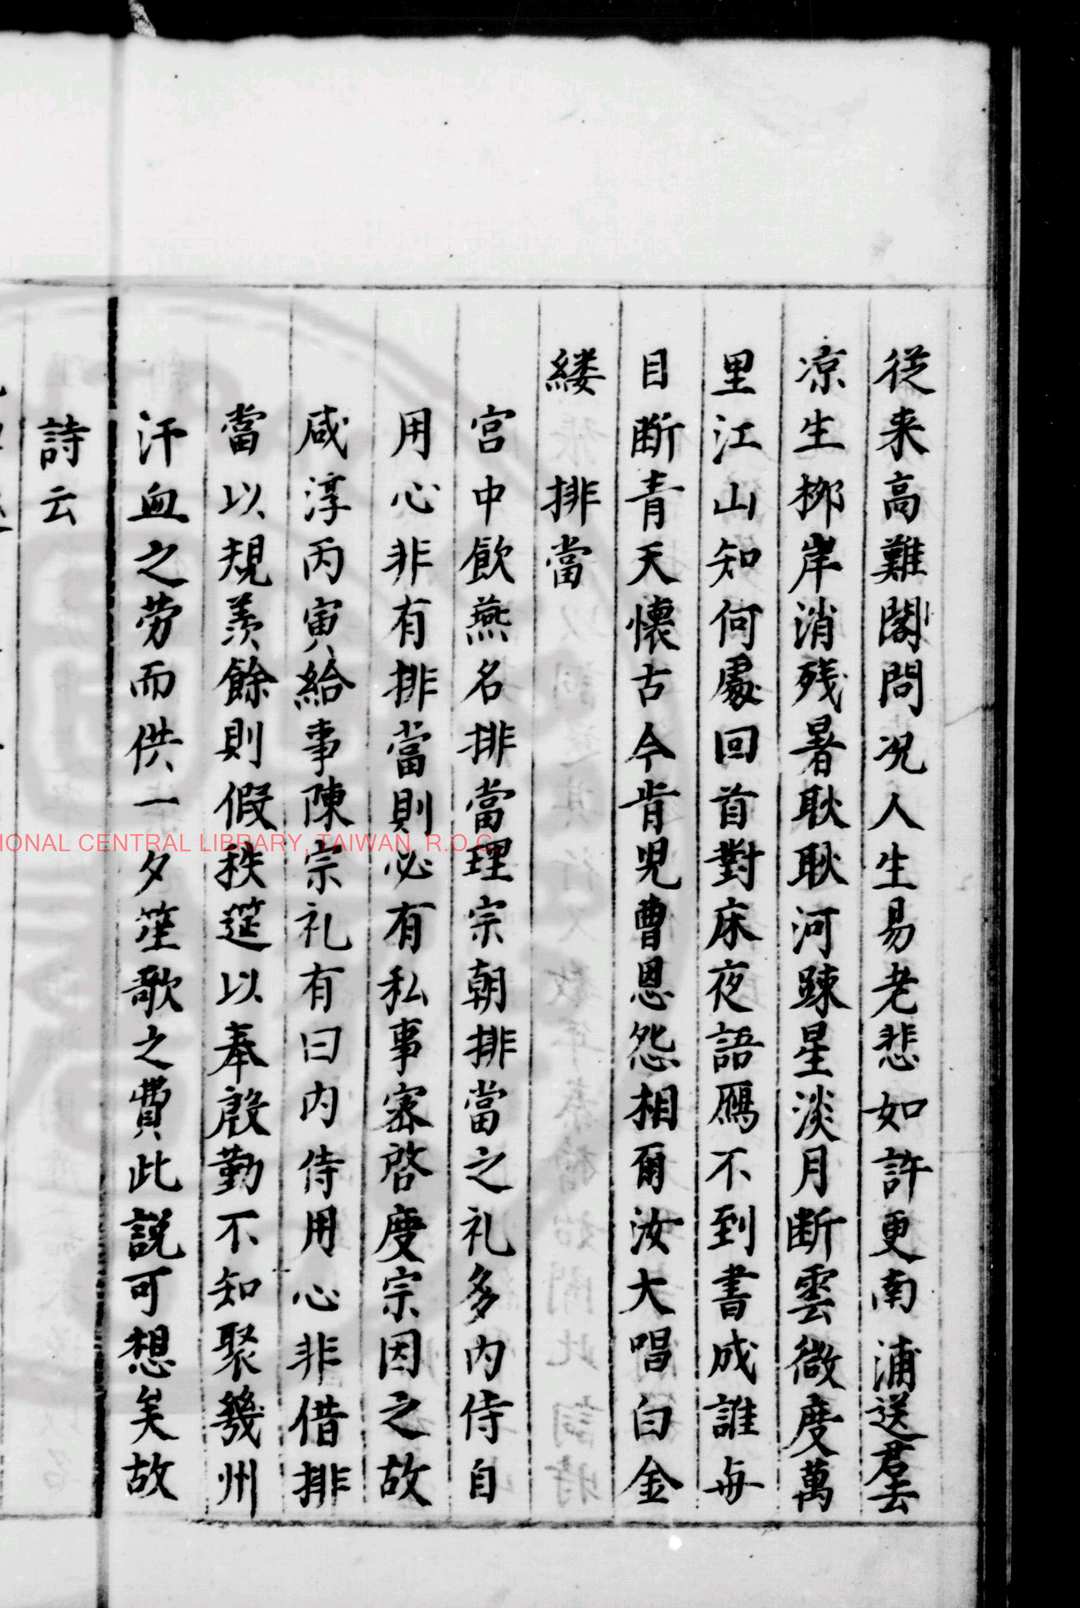 從来高難閣問况人生易老悲如許更南浦送君去
凉生桞岸消残暑耿耿河踈星淡月断雲微度萬
里江山知何處回首對床夜語鴈不到書成誰与
目断青天懐古今肯児曹恩怨相爾汝大唱白金
縷　排當
宫中飲燕名排當理宗朝排當之礼多内侍自
用心非有排當則必有私事密啓度宗因之故
咸淳丙寅給事陳宗礼有曰内侍用心非借排
當以規羨餘則假秩筵以奉殷勤不知聚幾州
汗血之劳而供一夕笙歌之費此説可想矣故
詩云
NATIONAL CENTRAL LIBRARY, TAIWAN, R.O.C.